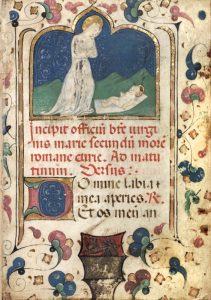 Incipit officiū bte uirgi
nis marie secundū morē
romane curie. Ad matu
tinum. Versus:
Domine labia
mea aperies. R.
Et os meū an